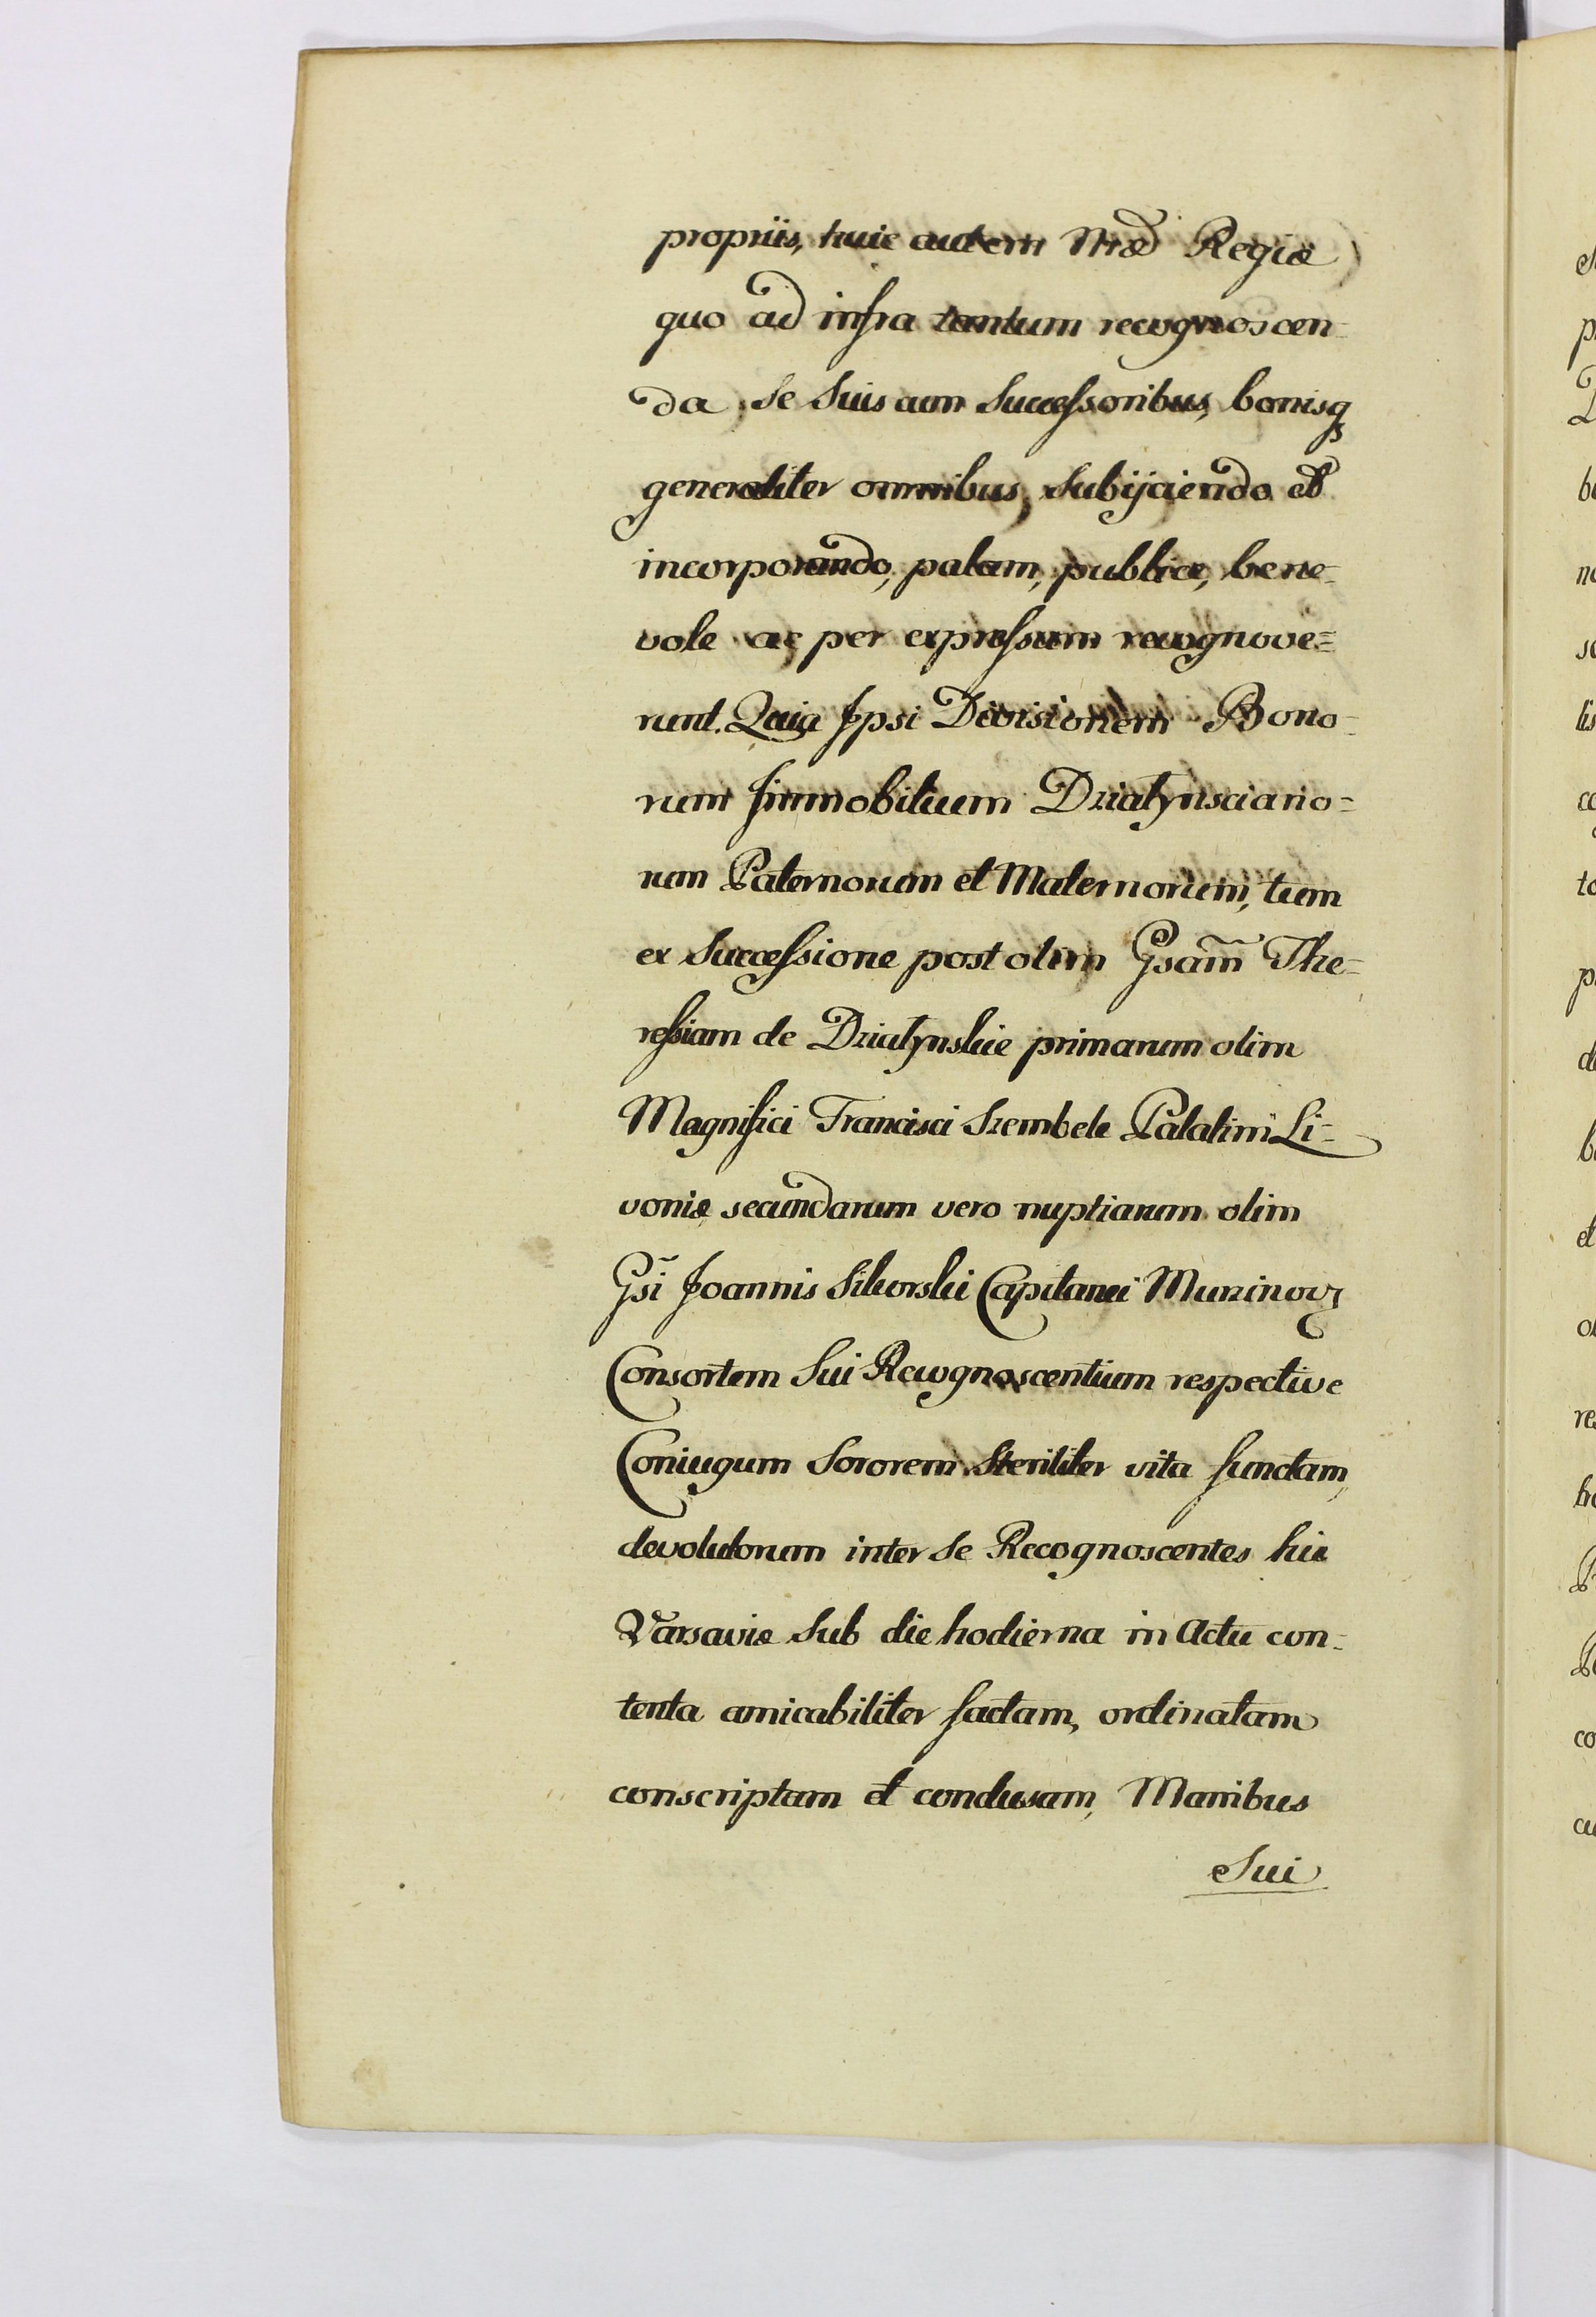 propriis, huic autem Nræ Regiæ
quo ad infra tantum recognoscen-
da, Se Suis cum Successoribus, bonisq;
generaliter omnibus, Subijciendo et
incorporando, palam, publice, bene-
vole ac per expressum recognove=
runt. Quia Ipsi Divisionem Bono-
rum Immobilium Działynscianо=
rum Paternorum et Maternorum, tum
ex Successione post olim Gsam̃ The=
ressiam de Działynskie primarum olim
Magnifici Francisci Szembek Palatini Li-
voniæ secundarum vero nuptiarum olim
Gsi Joannis Sikorski Capitanei Murzinov
Consortem Sui Recognoscentium respective
Coniugum Sororem Steriliter vita functam,
devolutorum inter Se Recognoscentes hic
Varsaviæ Sub die hodierna in Actu con-
tenta amicabiliter factam, ordinatam
conscriptam et conclusam, Manibus
Sui